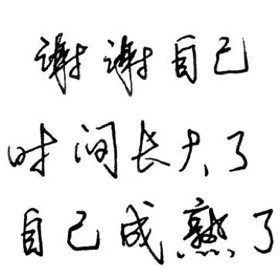 谢谢自己
时间长大了
自己成熟了